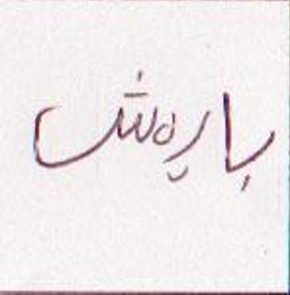 باڕەش